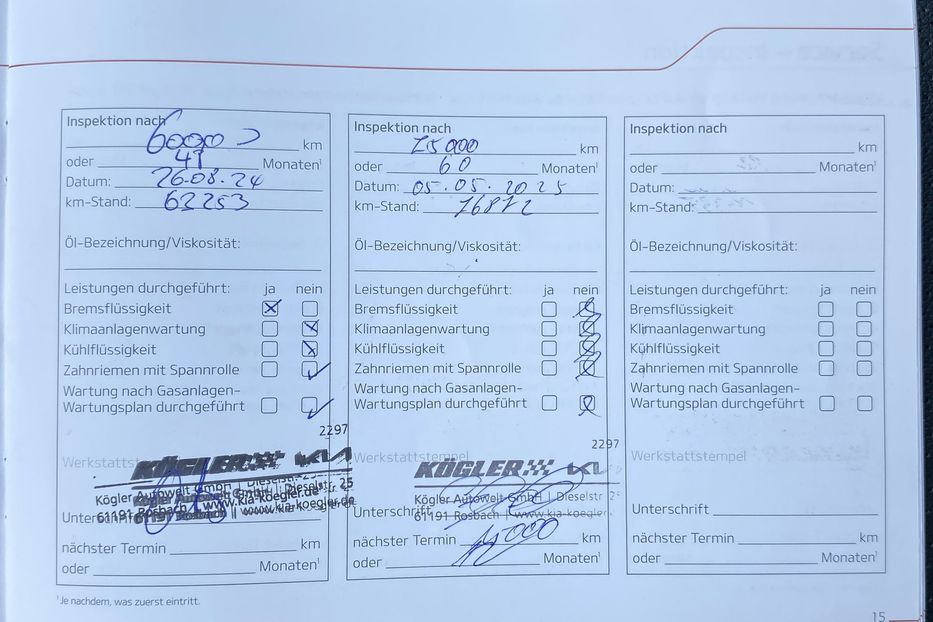 Inspektion nach
60000 km
oder 41 Monaten¹
Datum: 26.08.24
km-Stand: 63253
Öl-Bezeichnung/Viskosität:
Leistungen durchgeführt: ja nein
Bremsflüssigkeit
Klimaanlagenwartung
Kühlflüssigkeit
Zahnriemen mit Spannrolle
Wartung nach Gasanlagen-
Wartungsplan durchgeführt
2297
Werkstattst
KÖGLER KIA
Kögler Autowelt GmbH | Dieselstr. 25
61191 Rosbach | www.kia-koegler.de
Unterschrift
nächster Termin km
oder Monaten¹
Inspektion nach
75000 km
oder 60 Monaten¹
Datum: 05.05.2025
km-Stand: 76872
Öl-Bezeichnung/Viskosität:
Leistungen durchgeführt: ja nein
Bremsflüssigkeit
Klimaanlagenwartung
Kühlflüssigkeit
Zahnriemen mit Spannrolle
Wartung nach Gasanlagen-
Wartungsplan durchgeführt
2297
Werkstattstempel
KÖGLER KIA
Kögler Autowelt GmbH | Dieselstr 2
Unterschrift
61191 Rosbach | www.kia-koegler
nächster Termin km
oder Monaten¹
Inspektion nach
km
oder Monaten¹
Datum:
km-Stand:
Öl-Bezeichnung/Viskosität:
Leistungen durchgeführt: ja nein
Bremsflüssigkeit
Klimaanlagenwartung
Kühlflüssigkeit
Zahnriemen mit Spannrolle
Wartung nach Gasanlagen-
Wartungsplan durchgeführt
Werkstattstempel
Unterschrift
nächster Termin km
oder Monaten¹
¹Je nachdem, was zuerst eintritt.
15